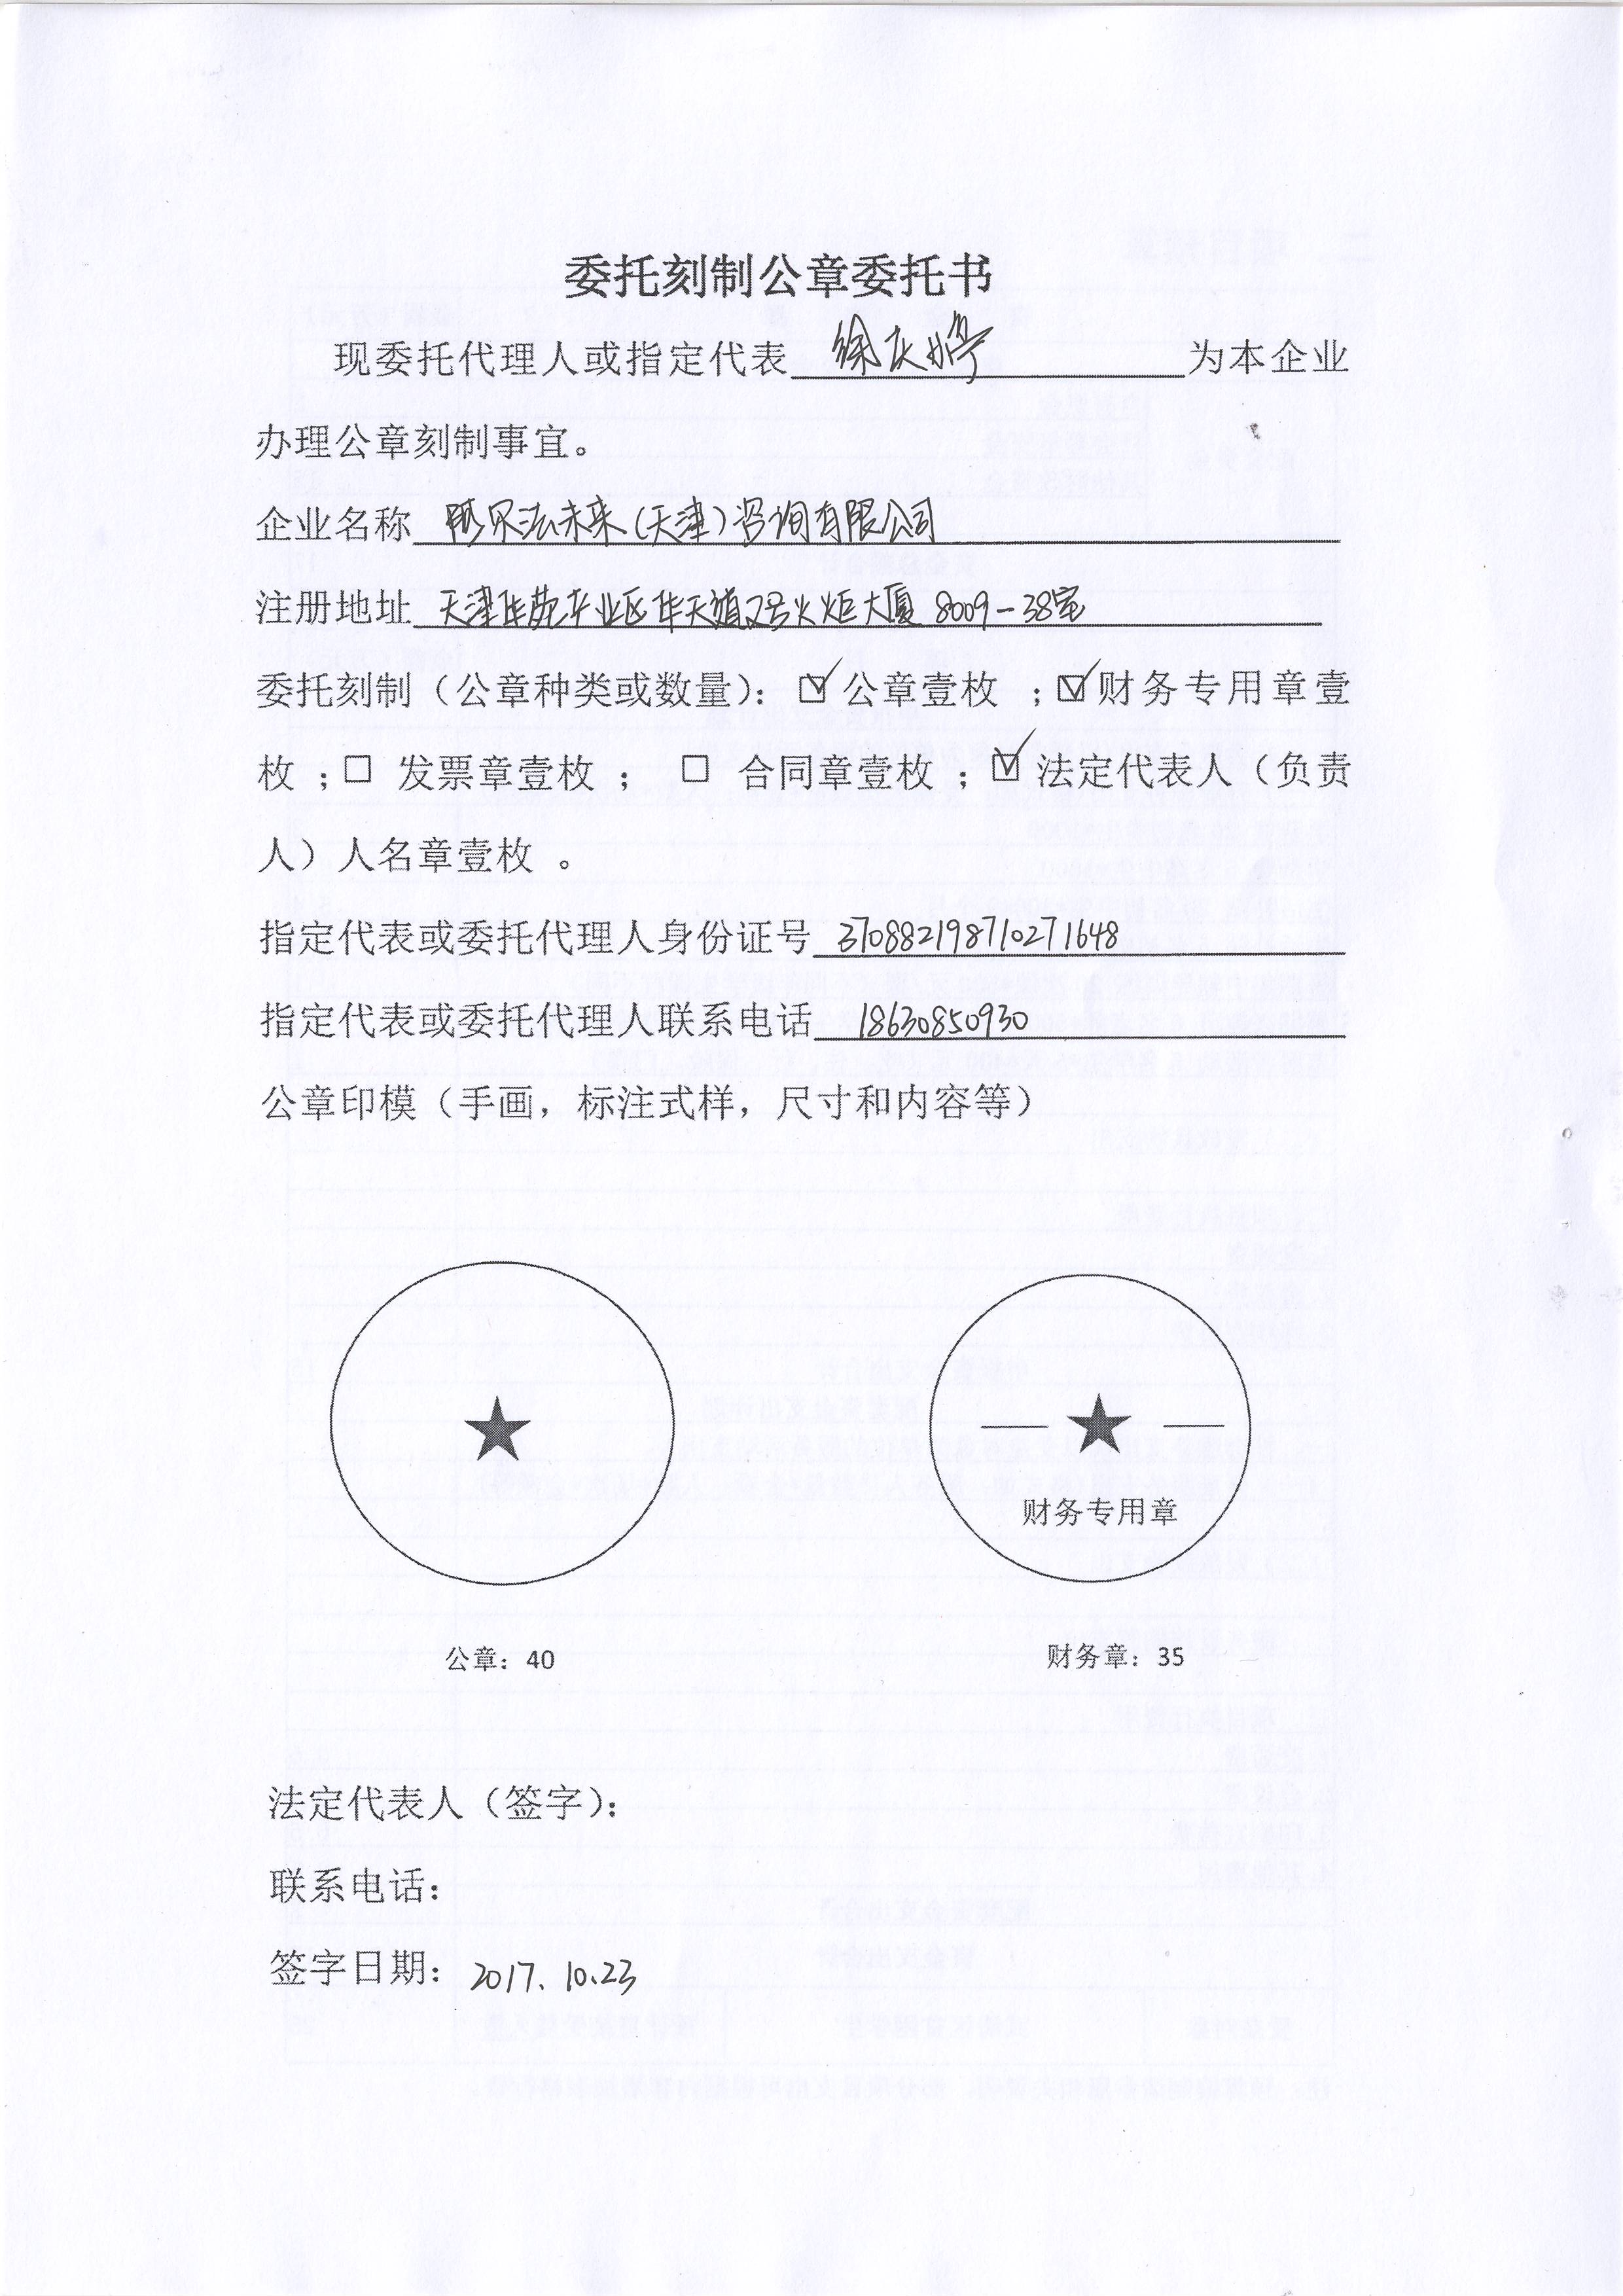 委托刻制公章委托书
现委托代理人或指定代表 徐庆婷 为本企业
办理公章刻制事宜。
企业名称 阿尔法未来(天津)咨询有限公司
注册地址 天津华苑产业区华天道2号火炬大厦 8009-38室
委托刻制（公章种类或数量）：☑公章壹枚 ；☑财务专用章壹
枚 ；□ 发票章壹枚 ； □ 合同章壹枚 ；☑法定代表人（负责
人）人名章壹枚 。
指定代表或委托代理人身份证号 370882198710271648
指定代表或委托代理人联系电话 18630850930
公章印模（手画，标注式样，尺寸和内容等）
财务专用章
公章：40
财务章：35
法定代表人（签字）：
联系电话：
签字日期：2017.10.23